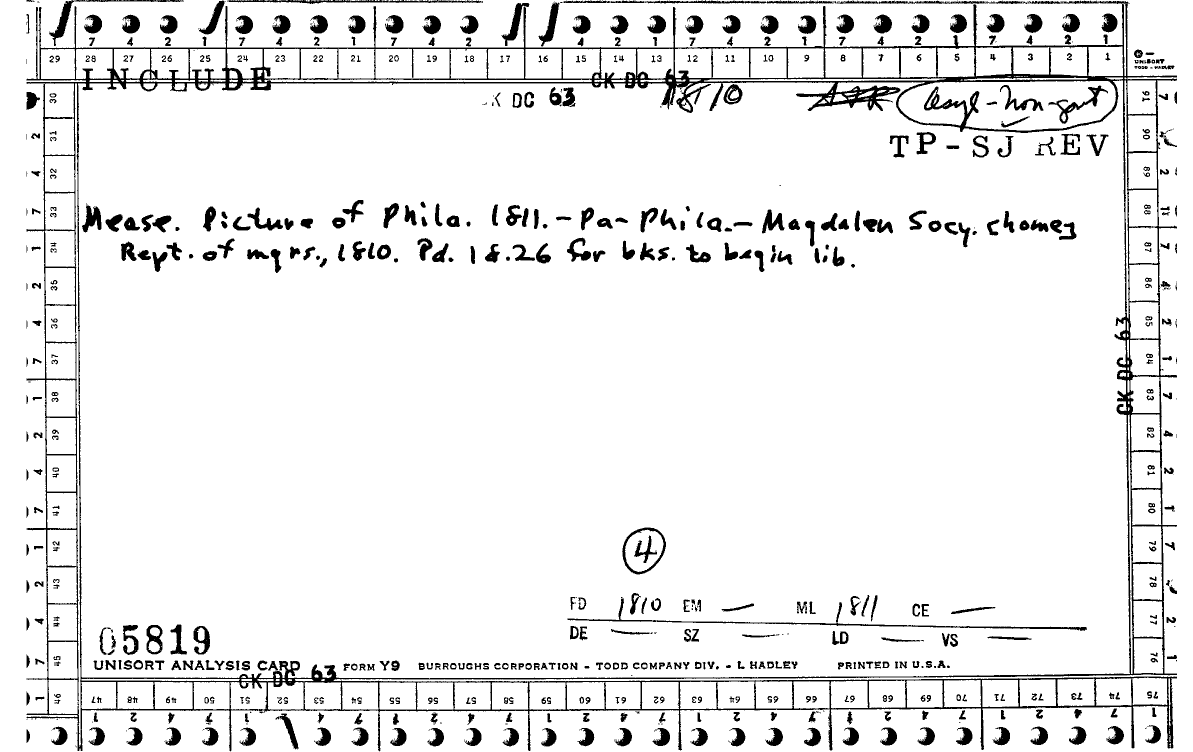 7 4 2 1 7 4 2 1 7 4 2 1 7 4 2 1 7 4 2 1 7 4 2 1 7 4 2 1
29 28 27 26 25 24 23 22 21 20 19 18 17 16 15 14 13 12 11 10 9 8 7 6 5 4 3 2 1
UNISORT
TODD - HADLEY
INCLUDE
CK DC 63
CK DC 63
1810
asyl-non-govt
TP-SJ REV
Mease. Picture of Phila. 1811.-Pa-Phila.-Magdalen Socy.
Rept. of mgrs., 1810. Pd. 18.26 for bks. to begin lib.
CK DC 63
4
FD 1810 EM — ML 1811 CE —
DE — SZ — LD — VS —
05819
UNISORT ANALYSIS CARD FORM Y9 BURROUGHS CORPORATION - TODD COMPANY DIV. - L HADLEY PRINTED IN U.S.A.
CK DC 63
30 31 32 33 34 35 36 37 38 39 40 41 42 43 44 45 46
91 90 89 88 87 86 85 84 83 82 81 80 79 78 77 76
47 48 49 50 51 52 53 54 55 56 57 58 59 60 61 62 63 64 65 66 67 68 69 70 71 72 73 74 75